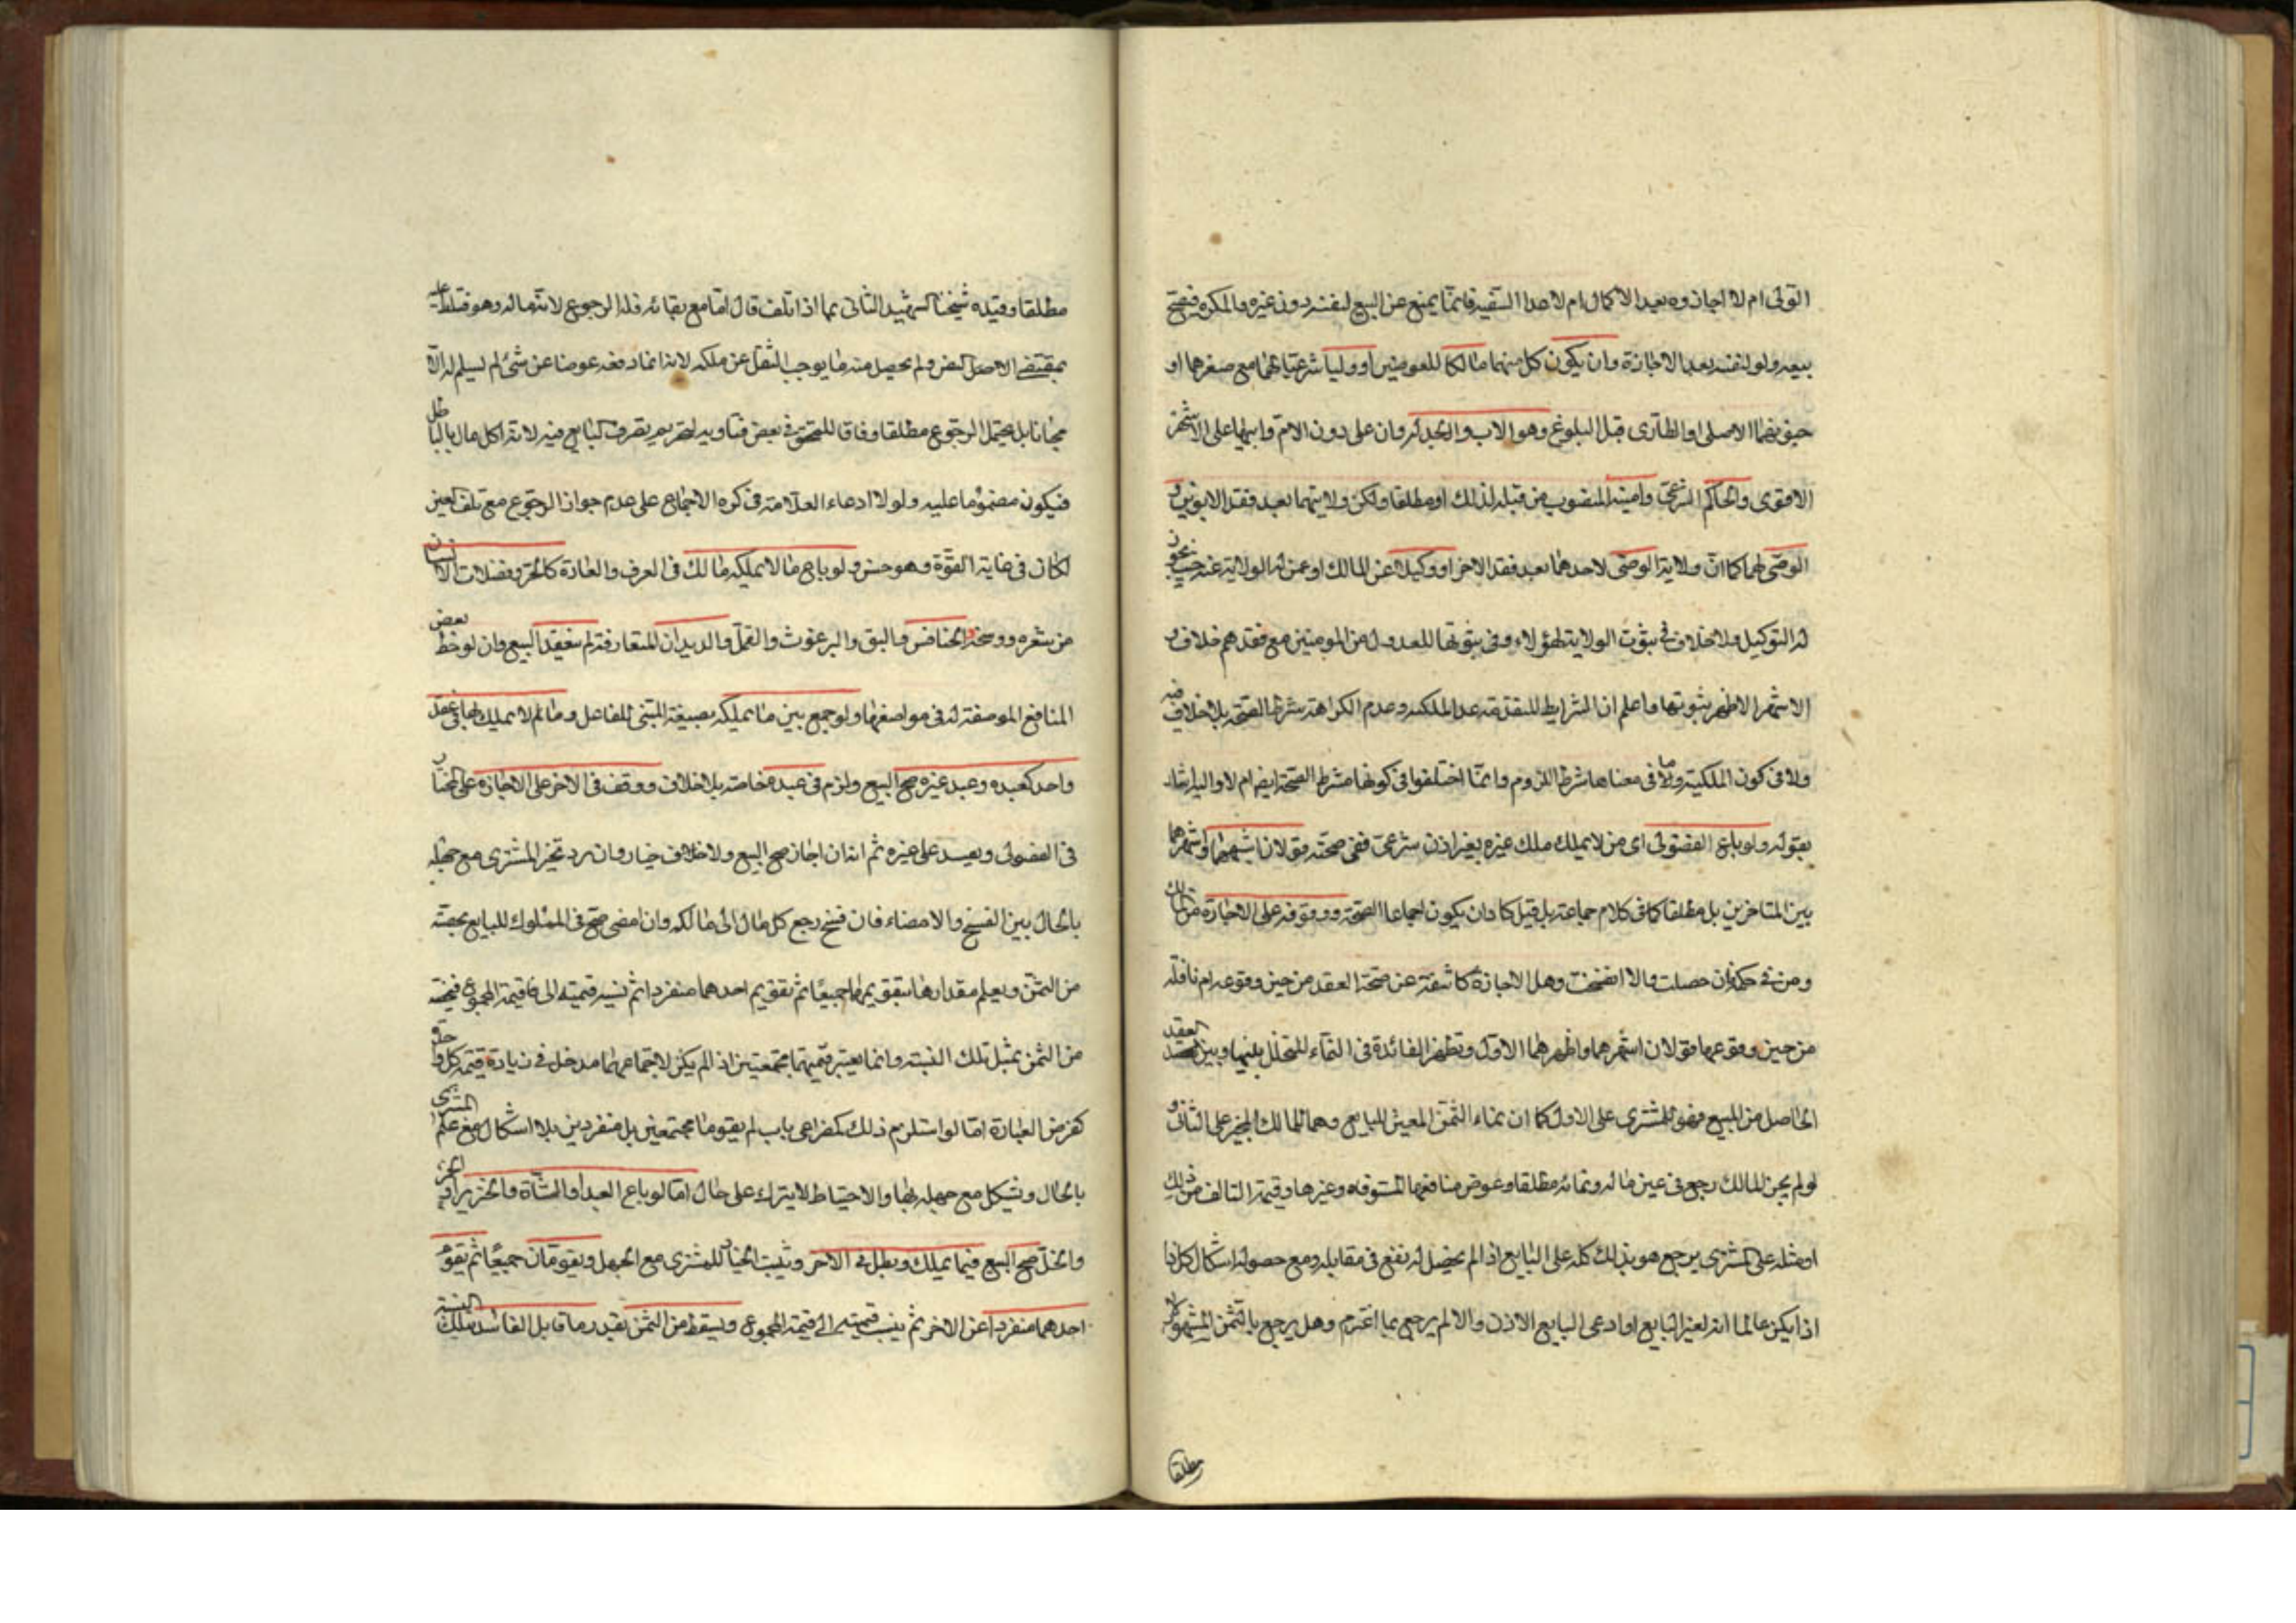 التولى ام لا اجازوه بعد الاكمال ام لا عدا السفيه فانما يمنع عن البيع لنفسه دون غيره والمكره فيصح
بيعه ولو لنفسه بعد الاجازة وان يكون كل منهما مالكا للعوضين او وليا شرعيا لهما مع صغرهما او
جنونهما الاصلى او الطارى قبل البلوغ وهو الاب والجد له وان على دون الام وابيها على الاشهر
الاقوى والحاكم الشرعى وامينه المنصوب من قبله لذلك او مطلقا ولكن ولايتهما بعد فقد الابوين و
الوصى لهما كما ان ولاية الوصى لاحدهما بعد فقد الاخر او وكيلا عن المالك او عمن له الولاية عنه حيث يجوز
له التوكيل ولا خلاف فى ثبوت الولاية لهؤلاء وفى ثبوتها للعدول من المومنين مع فقدهم خلاف و
الاشهر الاظهر ثبوتها واعلم ان الشرايط المتقدمة عدا الملكية وعدم الكراهة شرط الصحة بلا خلاف فيه
ولا فى كون الملكية وما فى معناها شرط اللزوم وانما اختلفوا فى كونها شرط الصحة ايضا ام لا واليه اشار
بقوله ولو باع الفضولى اى من لا يملك ملك غيره بغير اذن شرعى ففى صحته قولان اشبههما واشهرهما
بين المتاخرين بل مطلقا كما فى كلام جماعة بل قيل كاد ان يكون اجماعا الصحة ووقوفه على الاجازة من المالك
ومن فى حكمه فان حصلت والا انفسخت وهل الاجازة كاشفة عن صحة العقد من حين وقوعه ام ناقلة
من حين وقوعها قولان اشهرهما واظهرهما الاول وتظهر الفائدة فى النماء المتخلل بينها وبين العقد
الحاصل من المبيع فهو للمشترى على الاول كما ان نماء الثمن المعين للبايع وهما للمالك المجيز على الثانى و
لو لم يجز المالك رجع فى عين ماله ونمائه مطلقا وعوض منافعها المستوفاه وغيرها وقيمة التالف من ذلك
او مثله على المشترى يرجع هو بذلك كله على البايع اذا لم يحصل له نفع فى مقابله ومع حصوله اشكال كل ذا
اذا يكن عالما انه لغير البايع او ادعى البايع الاذن والا لم يرجع بما اغترم وهل يرجع بالثمن المشهور لا
مطلقا
مطلقا وقيده شيخنا الشهيد الثانى بما اذا تلف قال اما مع بقائه فله الرجوع لانه ماله وهو مسلط عليه
بمقتضى الاصل النص ولم يحصل منه ما يوجب النقل عن ملكه لانه انما دفعه عوضا عن شئ لم يسلم له لا
مجانا بل يحتمل الرجوع مطلقا وفاقا للمحقق فى بعض فتاويه لتحريم تصرف البايع فيه لانه اكل مال بالباطل
فيكون مضمونا عليه ولولا ادعاء العلامة فى كره الاجماع على عدم جواز الرجوع مع تلف العين
لكان فى غاية القوة وهو حسن ولو باع ما لا يملكه مالك فى العرف والعادة كالحر وفضلات الانسان
من شعره ووسخه والخنافس والبق والبرغوث والقمل والديدان المتعارفة لم ينعقد البيع وان لوحظ بعض
المنافع الموصفة له فى مواضعها ولو جمع بين ما يملكه بصيغة المبنى للفاعل وما لم لا يملك لها فى عقد
واحد كعبده وعبد غيره صح البيع ولزم فى عبده خاصة بلا خلاف ووقف فى الاخر على الاجازة على المختار
فى الفضولى ويفسد على غيره ثم انه ان اجاز صح البيع ولا خلاف خيار وان رد تخير المشترى مع جهله
بالحال بين الفسخ والامضاء فان فسخ رجع كل مال الى مالكه وان امضى صح فى المملوك للبايع بحصته
من الثمن ويعلم مقدارها بتقويمهما جميعا ثم تقويم احدهما منفردا ثم نسبة قيمته الى قيمة المجموع فيخصه
من الثمن بمثل تلك النسبة وانما يعتبر قيمتهما مجتمعتين اذ لم يكن لاجتماعهما مدخل فى زيادة قيمة كل واحد
كفرض العبارة اما لو استلزم ذلك كمصراعى باب لم يقوما مجتمعين بل منفردين بلا اشكال مع علم المشترى
بالحال ويشكل مع جهله بها والاحتياط لا يترك على حال اما لو باع العبد او الشاة والخنزير او الحر
والخل صح البيع فيما يملك وبطل فى الاخر ويثبت الخيار للمشترى مع الجهل ويقومان جميعا ثم يقوم
احدهما منفردا عن الاخر ثم ينسب قيمته الى قيمة المجموع ويسقط من الثمن بقدر ما قابل الفاسد بتلك النسبة